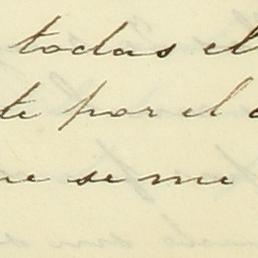 todas el
te por el
ne se me